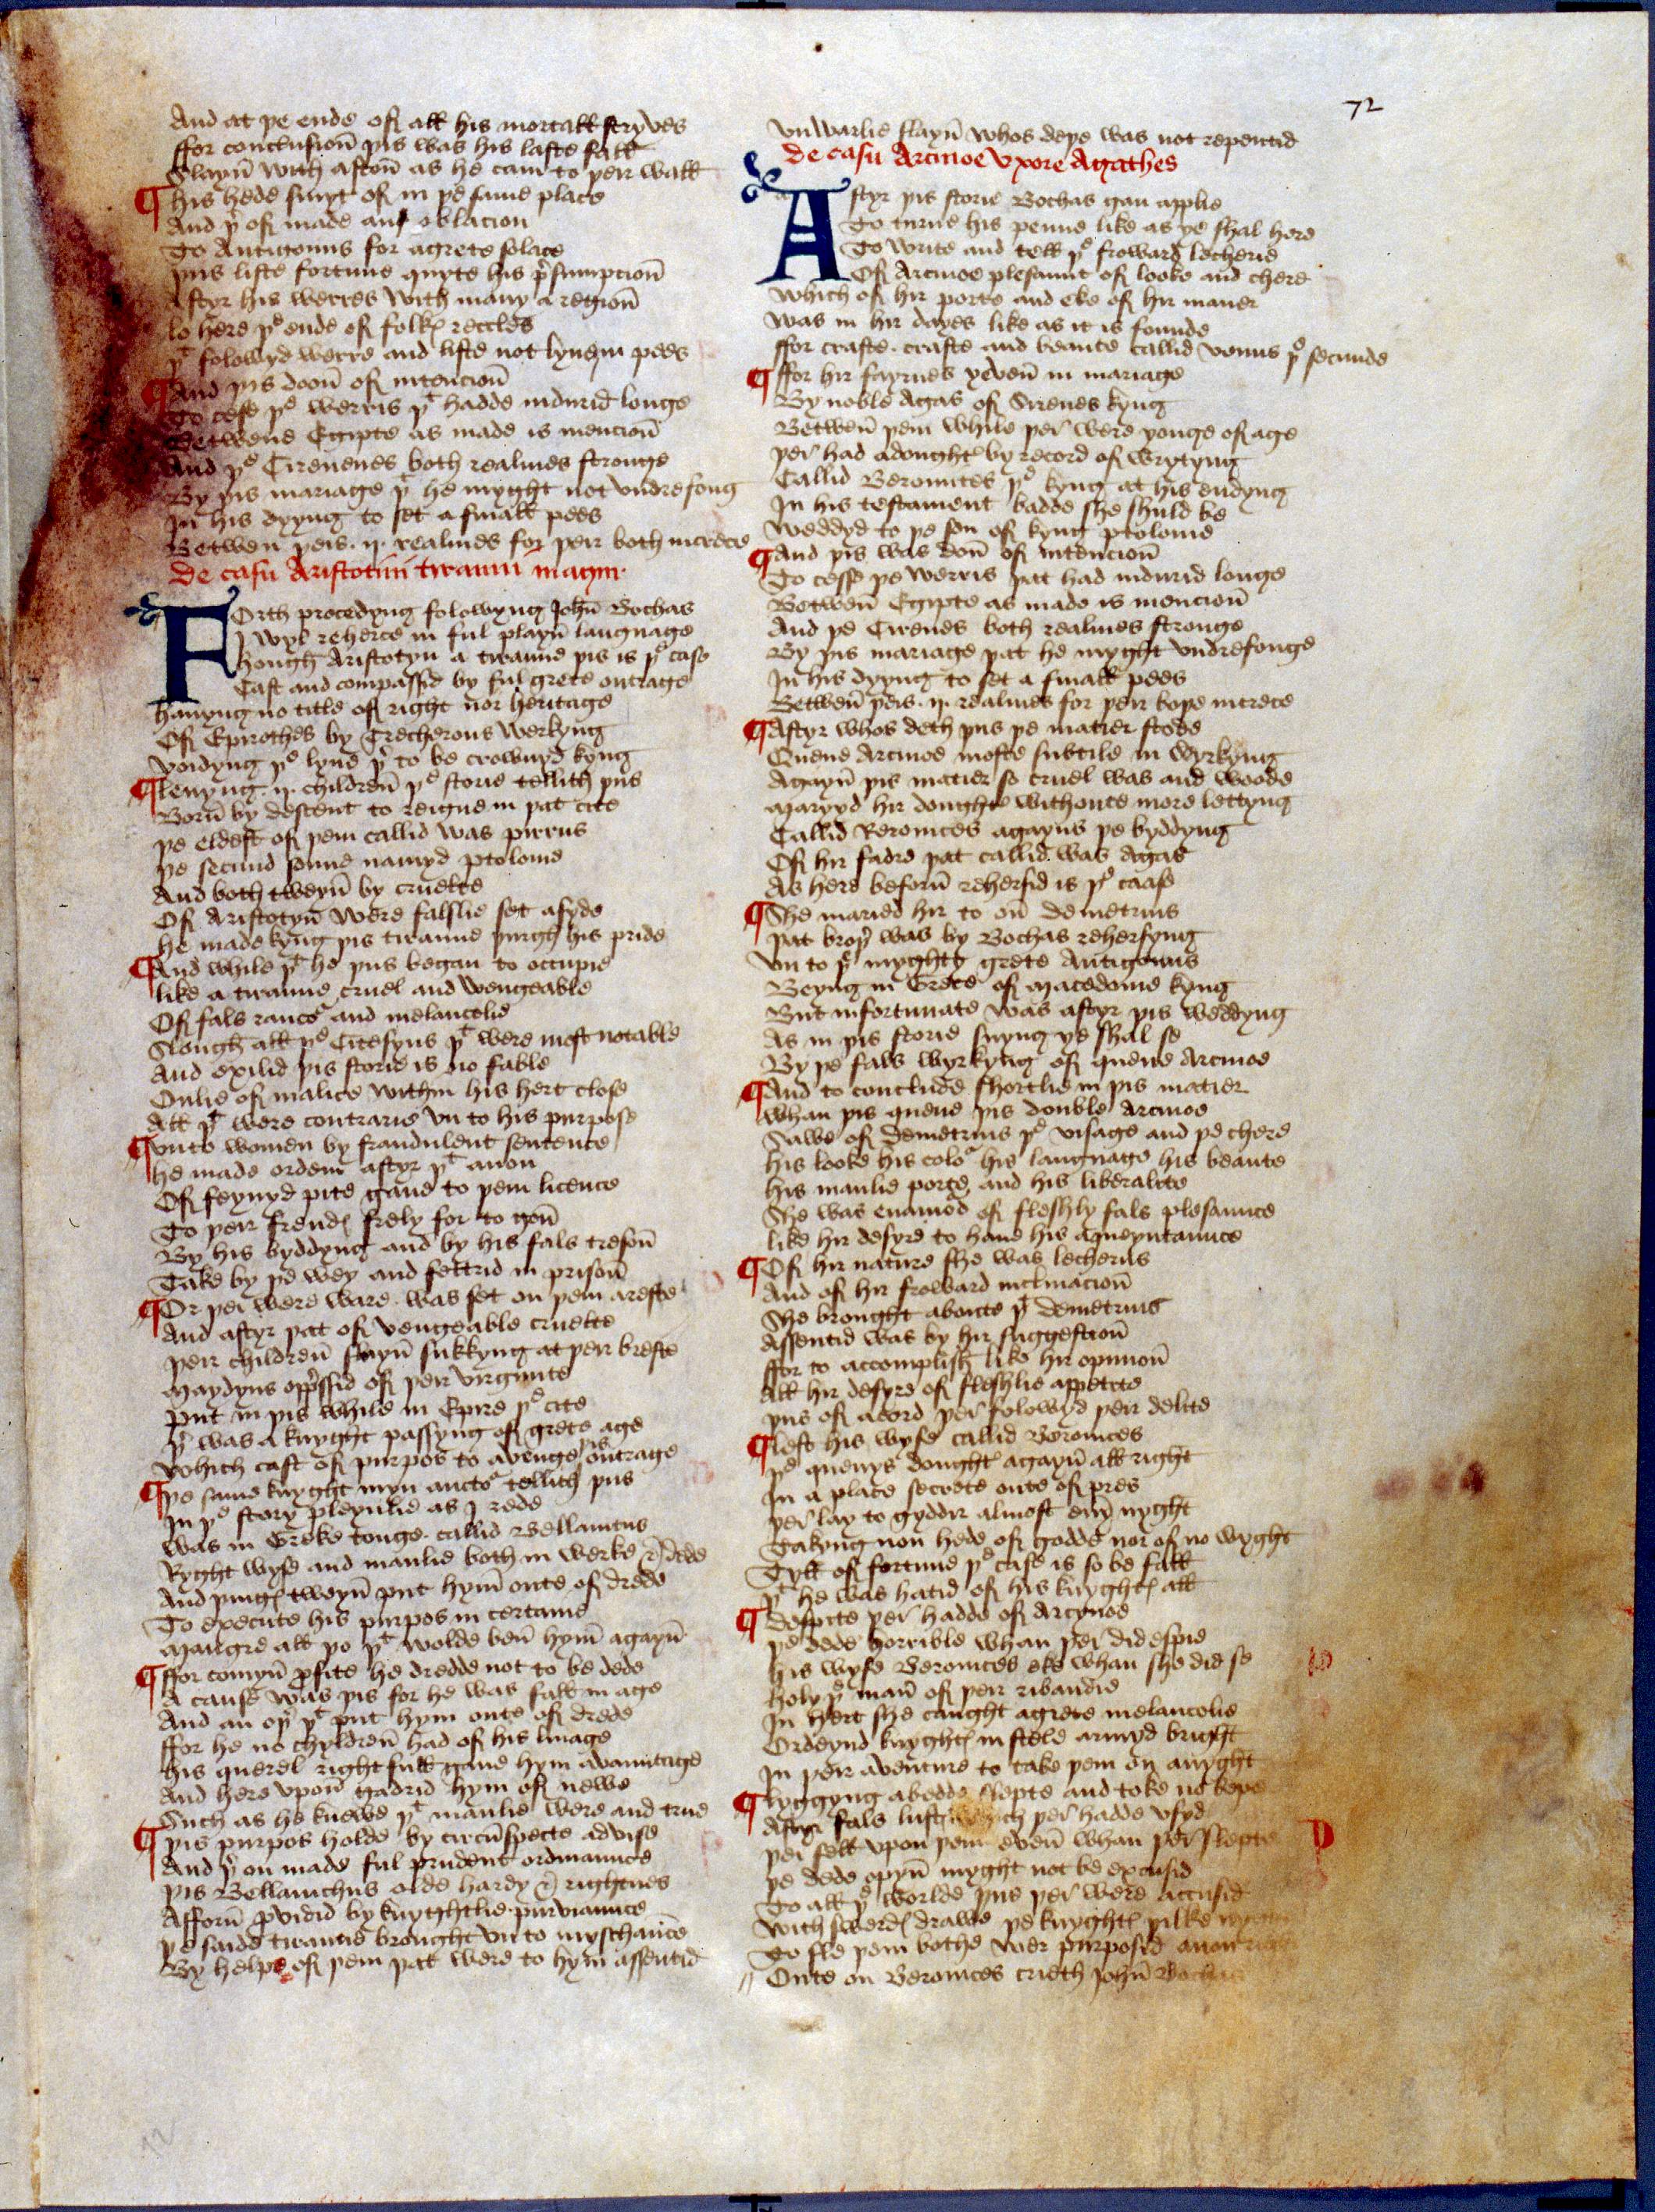 72
And at þe ende of all his mortall stryves
ffor conclusioñ þis was his laste fall
Slayñ with a stoñ as he cam to þeir wall
¶ his hede smyt of in þe same place
And þ̉ of made an oblacion
To Antigonus for a grete solace
þus liste fortune quyte his p̉sumpcioñ
Aftyr his werres with many a regioñ
lo here þe ende of folkꝭ reccles
þt folowyd werre and liste not lyue in pees
¶ And þis dooñ of intencioñ
To cese þe werris þt hadde indurid longe
Betwene Egipte as made is mencioñ
And þe Cirenenes both realmes stronge
By þis mariage þt he myght not vndrefong
In his dyyng to set a finall pees
Betwen þeis .ij. realmes for þeir both increce
De casu Aristotini tiranni magni
Forth procedyng folowyng Joħn Bochas
I wyl reherce in ful playñ langnage
hough Aristotyn a tiranne þis is þe case
Cast and compassid by ful grete outrage
hauyng no title of right nor heritage
Of Epirothes by Trecherous werkyng
voidyng þe lyne þ̉ to be crownyd kyng
¶ levyng .ij. childreñ þe storie tellith þus
Borñ by descent to reigne in þat cite
þe eldest of þem callid was pirrus
þe secund sonne namyd ptolome
And both tweyñ by cruelte
Of Aristotyñ were falslie set asyde
he made kyng þis tiranne þurgh his pride
¶ And while þt he þus began to occupie
like a tiranne cruel and vengeable
Of fals rancor and melancolie
Slough all þe Citesyns þt were most notable
And exilid þis storie is no fable
Onlie of malice within his hert close
All þt were contrarie vn to his purpose
¶ vnto women by fraudulent sentence
he made ordein aftyr þt anon
Of feynyd pite gaue to þem licence
To þeir frendꝭ frely for to goñ
By his byddyng and by his fals tresoñ
Take by þe wey and fettrid in prisoñ
¶ Or þei were ware . was set on þem areste
And aftyr þat of vengeable cruelte
þeir childreñ slayñ sukkyng at þeir breste
Maydyns opp̉ssid of þeir virginite
But in þis while in Epire þe cite
þ̉ was a knyght passyng of grete age
which cast of purpos to avenge þis outrage
¶ þe same knyght myn auctor tellith þus
In þe story pleynlie as I rede
was in Greke tonge . callid Bellanicus
Ryght wyse and manlie both in werke & dede
And þingꝭ tweyñ put hym̄ oute of drede
To execute his purpos in certaine
Maugre all þo þt wolde beñ hym̄ agayñ
¶ ffor comyñ ꝓfite he dredde not to be dede
A cause was þis for he was fall in age
And an oþ̉ þt put hym oute of drede
ffor he no chyldreñ had of his linage
his querel right full gaue hym avauntage
And here vpoñ gadrid hym of newe
Such as he knewe þt manlie were and true
¶ þis purpos holde by circūspecte advise
And þ̉ on made ful prudent ordinaunce
þis Bellanichus olde hardy & rightwes
Afforñ ꝓvidid by knyghtlie purviaunce
þe saide tirantie brought vn to myschaūce
By helpe of þem þat were to hym̄ assentid
vnwarlie slayñ whos deþe was not repentid
De casu Arcinoe vxore Agathes
Aftyr þis storie Bochas gan applie
To turne his penne like as ye shal here
To write and tell þe froward lecherie
Of Arcinoe plesaunt of looke and chere
which of hir porte and eke of hir maner
was in hir dayes like as it is founde
ffor crafte . crafte and beaute callid venus þe secunde
¶ ffor hir fayrnes yeveñ in mariage
By noble Agas of Sirenes kyng
Betweñ þem while þei were yonge of age
þei had a doughtꝭ by record of wrytyng
Callid Beronices þe kyng at his endyng
In his testament badde she shuld be
weddyd to þe son of kyng ptolome
¶ And þis was doñ of intencioñ
To cesse þe werris þat had indurid longe
Betweñ Egipte as made is mencioñ
And þe Cirenes both realmes stronge
By þis mariage þat he myght vndrefonge
In his dyyng to set a finall pees
Betweñ þeis .ij. realmes for þeir boþe increce
¶ Aftyr whos deth þus þe matier stode
Quene Arcinoe moste subtile in wyrkyng
Agayñ þis matier so cruel was and woode
Maryyd hir doughtꝭ withoute more lettyng
Callid Beronices agayns þe byddyng
Of hir fadre þat callid was Agas
As here beforñ rehersid is þe caase
¶ She maried hir to oñ demetrius
þat broþ̉ was by Bochas rehersyng
vn to þe myghty grete Antigonus
Beyng in Grece of Macedoine kyng
But infortunate was aftyr þis weddyng
As in þis storie suyng ye shal se
By þe fals wyrkyng of quene Arcinoe
¶ And to conclude shortlie in þis matier
whan þis quene þis double Arcinoe
Sawe of demetrius þe visage and þe chere
his looke his color his langnage his beaute
his manlie porte and his liberalite
She was enamod of fleshly fals plesaunce
like hir desyre to haue his aqueyntaunce
¶ Of hir nature she was lecherus
And of hir froward inclinacioñ
She brought aboute þt demetrius
Assentid was by hir suggestioñ
ffor to accomplish like hir opinioñ
All hir desyre of fleshlie appetite
þus of acord þei folowyd þeir delite
¶ left his wyfe callid Beronices
þe quenys doughtꝭ agayñ all right
In a place secrete oute of pres
þei lay to gyddir almost eu̾y nyght
Takyng non hede of godde nor of no wyght
Tyll of fortune þe case is so be fall
þt he was hatid of his knyghtꝭ all
¶ Despite þei hadde of Arcynoe
þe dede horrible whan þei did espie
his wyfe Beronices eke whan she did se
holy þe man̄ of þeir ribaudie
In hert she caught a grete melancolie
Ordeynd knyghtꝭ in stele armyd bright
In þeir aventure to take þem on a nyght
¶ lyggyng abedde slepte and toke no kepe
Aftyr fals lustꝭ which þei hadde vsyd
þei fell vpon þem eveñ whan þei slepte
þe dede opyñ myght not be excusid
To all þe worlde þus þei were accusid
with swerdꝭ drawe þe knyghtꝭ þilke
To sle þem bothe wer purposid anon
// Oute on Beronices crieth Joħn Bochas